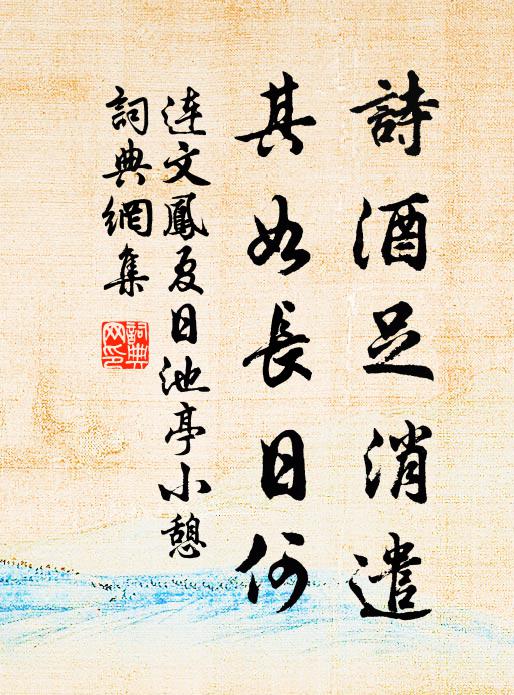 詩酒足消遣
其如長日何
连文鳳夏日池亭小憩
詞典網集
詞典網印